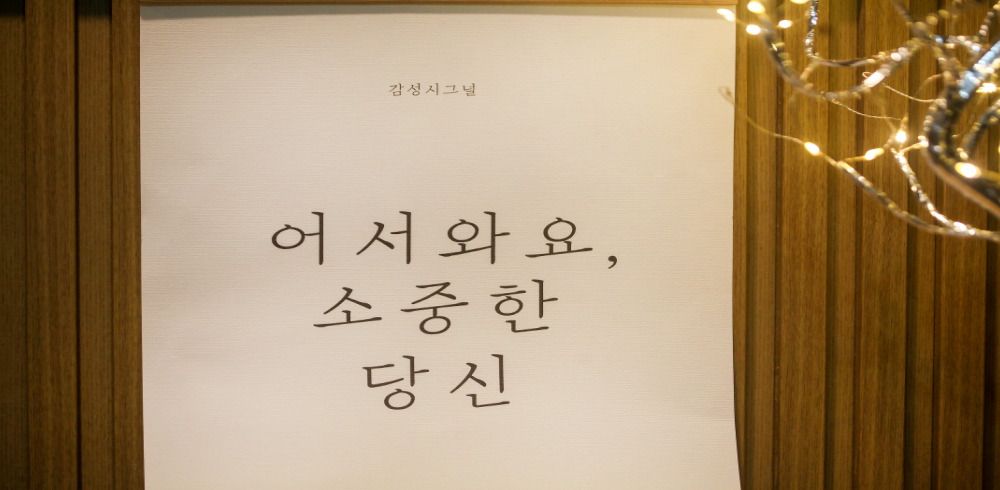 감성시그널
어서와요,
소중한
당신